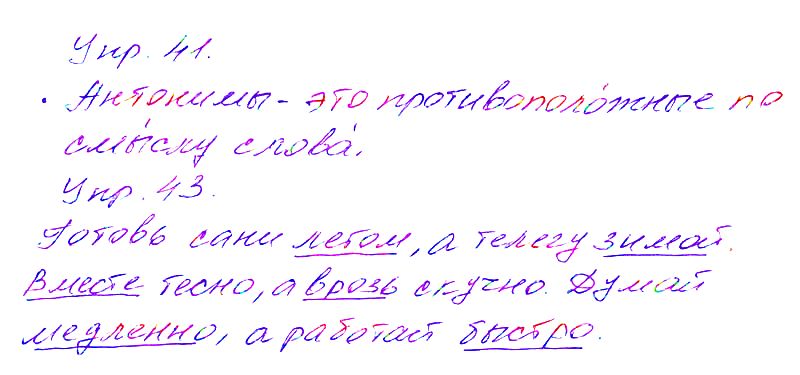 Упр. 41.
• Антонимы - это противополо́жные по
смы́слу слова́.
Упр. 43.
Готовь сани летом, а телегу зимой.
Вместе тесно, а врозь скучно. Думай
медленно, а работай быстро.